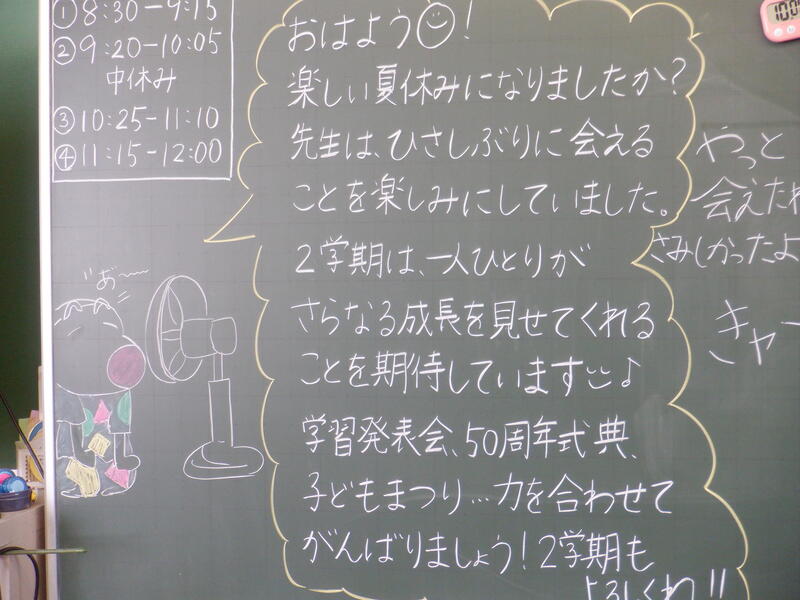 ①8:30-9:15
②9:20-10:05
中休み
③10:25-11:10
④11:15-12:00
おはよう!
楽しい夏休みになりましたか?
先生は、ひさしぶりに会える
ことを楽しみにしていました。
2学期は、一人ひとりが
さらなる成長を見せてくれる
ことを期待しています♪
学習発表会、50周年式典、
子どもまつり…力を合わせて
がんばりましょう!2学期も
よろしくね!!
やっと
会えたね
さみしかったよ
キャー
あ〜